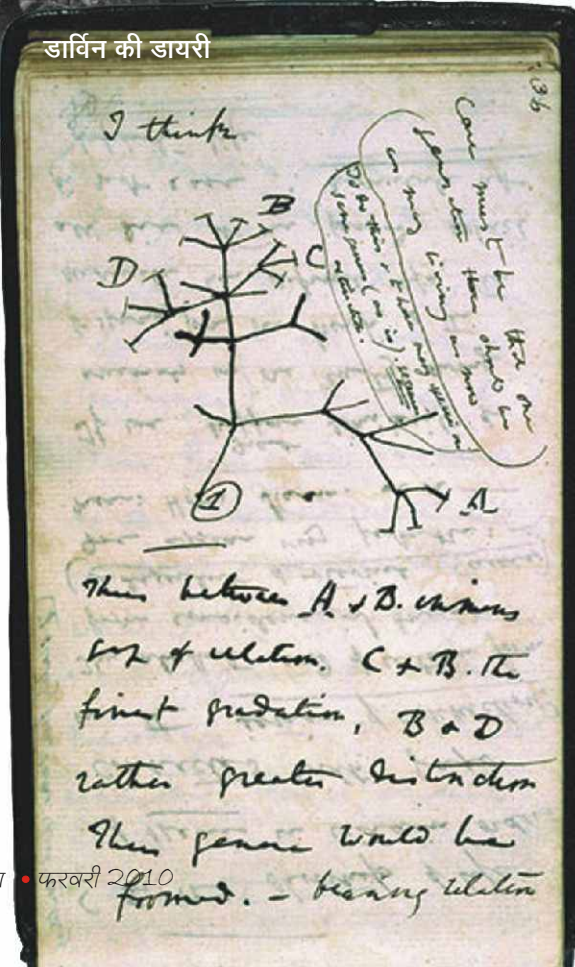 डार्विन की डायरी
36
I think
Case must be that one
generation then should be
as many living as now
To do this & to have many species in
same genus (as is), requires
extinction.
B
C
D
1
A
Thus between A. & B. immens
gap of relation. C & B. the
finest gradation, B & D
rather greater distinction
Thus genera would be
formed. – bearing relation
• फरवरी 2010